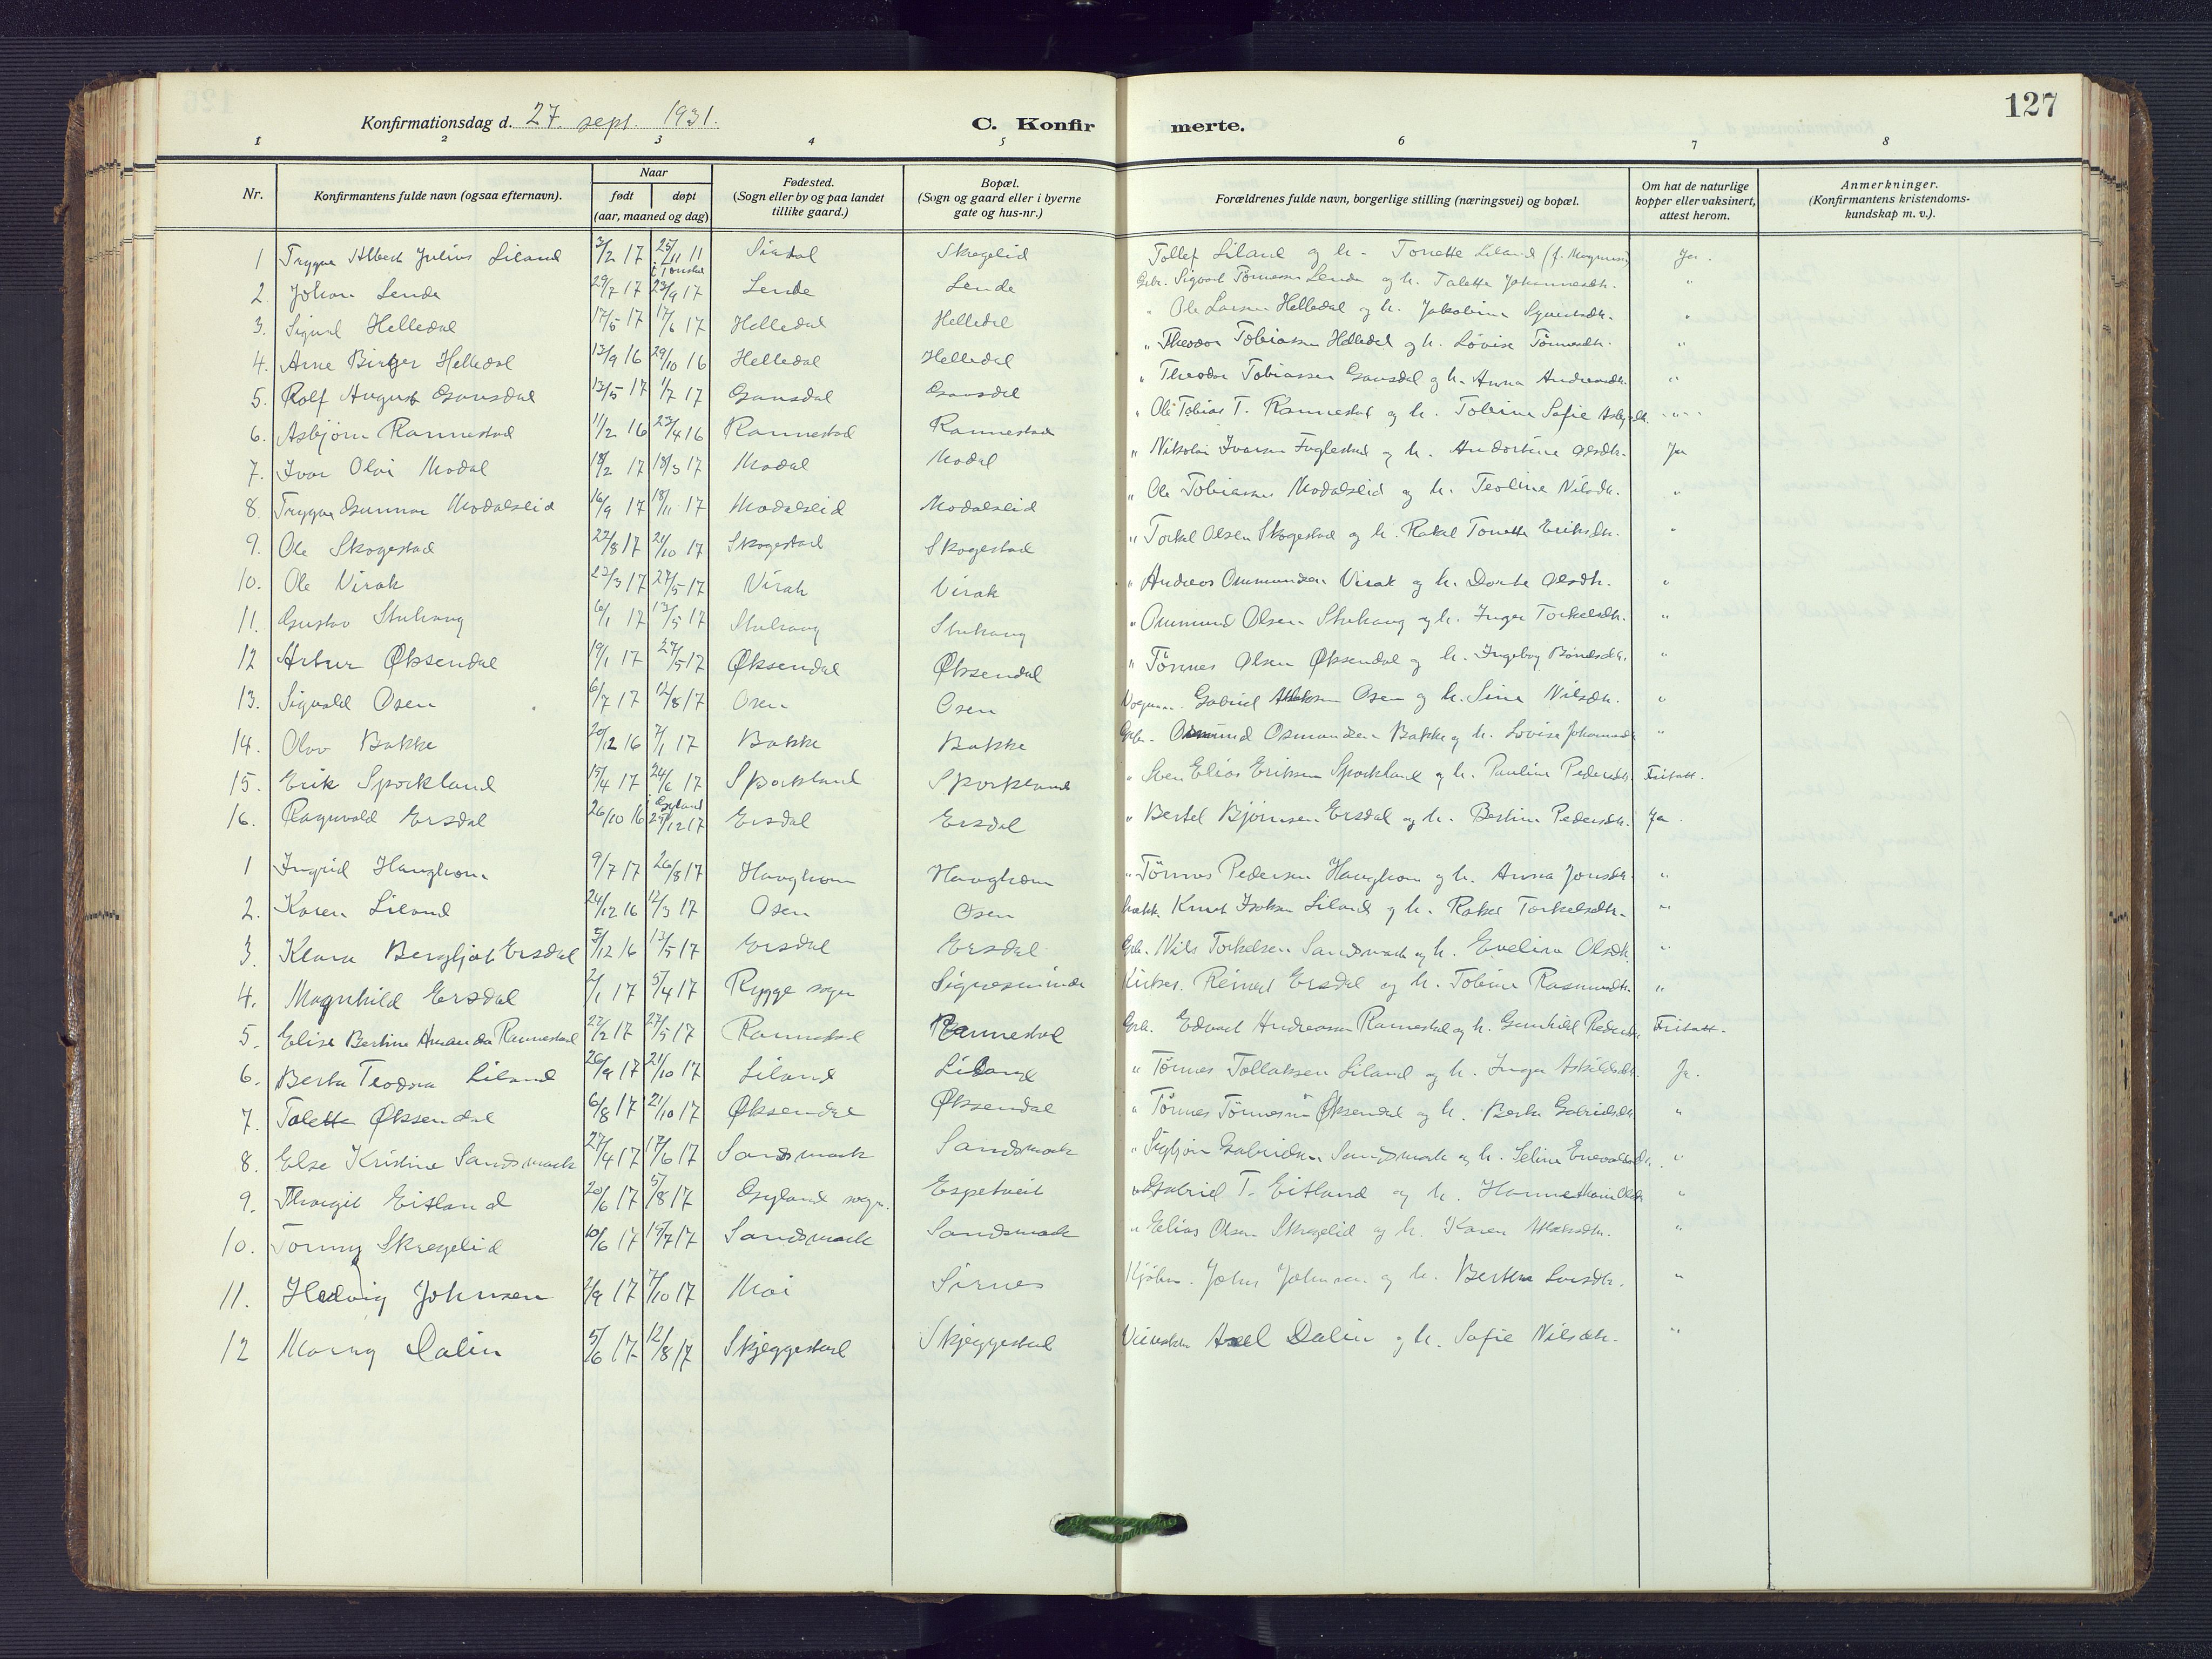 127
Konfirmationsdag d. 27. sept. 1931.
C. Konfirmerte.
1 2 3 4 5 6 7 8
Nr.
Konfirmantens fulde navn (ogsaa efternavn).
Naar
født
døpt
(aar, maaned og dag)
Fødested.
(Sogn eller by og paa landet
tillike gaard.)
Bopæl.
(Sogn og gaard eller i byerne
gate og hus-nr.)
Forældrenes fulde navn, borgerlige stilling (næringsvei) og bopæl.
Om hat de naturlige
kopper eller vaksinert,
attest herom.
Anmerkninger.
(Konfirmantens kristendoms-
kundskap m. v.).
1 Trygve Albert Julius Liland 3/2 17 25/11 11 Sirdal Skregelid Tollef Liland og h. Tonette Liland Ja.
2. Johan Lende 29/7 17 23/9 17 Lende Lende Gbr. Sigvart Tønnesen Lende og h. Talette Johannesdtr. "
3. Sigurd Helledal 17/5 17 17/6 17 Helledal Helledal " Ole Larsen Helledal og h. Jakobine "
4. Arne Birger Helledal 13/9 16 29/10 16 Helledal Helledal " Theodor Tobiassen Helledal og h. Lovise Tønnesdtr. "
5. Rolf August Gausdal 13/5 17 1/7 17 Gausdal Gausdal " Theodor Tobiassen Gausdal og h. Anna Andreasdtr. "
6. Asbjørn Rannestad 11/2 16 23/4 16 Rannestad Rannestad " Ole Tobias T. Rannestad og h. Tobine Sofie "
7. Ivar Olai Modal 18/2 17 18/3 17 Modal Modal " Nikolai Ivarsen Fuglestad og h. Olsdtr. Ja
8. Trygve Gunnar Modalsleid 16/9 17 18/11 17 Modalsleid Modalsleid " Ole Tobiassen Modalsleid og h. Teoline Nilsdtr. "
9. Ole Skogestad 22/8 17 21/10 17 Skogestad Skogestad " Torkel Olsen Skogestad og h. Rakel Tonette Eriksdtr. "
10. Ole Virak 22/3 17 27/5 17 Virak Virak " Andreas Ommundsen Virak og h. Dorte Olsdtr. "
11. Gustav Stuhaug 6/1 17 13/5 17 Stuhaug Stuhaug " Ommund Olsen Stuhaug og h. Inger Torkelsdtr. "
12 Artur Øksendal 19/1 17 27/5 17 Øksendal Øksendal " Tönnes Olsen Øksendal og h. Ingeborg "
13. Sigvald Osen 6/7 17 12/8 17 Osen Osen Gabriel Osen og h. Sina Nilsdtr. "
14. Olav Bakke 20/12 16 7/1 17 Bakke Bakke Gbr. Osmund Osmundsen Bakke og h. Lovise "
15. Erik Sporkland 15/4 17 24/6 17 Sporkland Sporkland " Sven Elias Eriksen Sporkland og h. Pauline Pedersdtr. Fritatt.
16. Ragnvald Ersdal 26/10 16 i Gyland Ersdal Ersdal " Bertel Bjørnsen Ersdal og h. Bertine Pedersdtr. Ja.
1 Ingrid Haughom 9/7 17 26/8 17 Haughom Haughom " Tönnes Pedersen Haughom og h. Anna Jonsdtr. "
2. Karen Liland 24/12 16 12/3 17 Osen Osen Knut Isaksen Liland og h. Rakel Torkelsdtr. "
3. Klara Bergljot Ersdal 5/12 16 13/5 17 Ersdal Ersdal Gbr. Nils Torkelsen Sandsmark og h. Evelina Olsdtr. "
4. Magnhild Ersdal 2/1 17 5/4 17 Rygge sogn Signesminde Reinert Ersdal og h. Tobine Rasmusdtr. "
5. Elise Bertine Amanda Rannestad 22/2 17 27/5 17 Rannestad Rannestad Gbr. Edvart Andreassen Rannestad og h. Gunhild Pedersdtr. Fritatt.
6. Berta Teodora Liland 26/9 17 21/10 17 Liland Liland " Tönnes Tollaksen Liland og h. Inger Ja.
7. Talette Øksendal 6/8 17 21/10 17 Øksendal Øksendal " Tönnes Tönnesen Øksendal og h. Berta Gabrielsdtr. "
8. Else Kristine Sandsmark 27/4 17 17/6 17 Sandsmark Sandsmark " Sigbjørn Gabrielsen Sandsmark og h. Seline "
9. Thorgit Eitland 20/6 17 5/8 17 Gyland sogn. Espetveit " Gabriel T. Eitland og h. "
10. Tonny Skregelid 10/6 17 15/7 17 Sandsmark Sandsmark " Elias Olsen Skregelid og h. Karen "
11. Hedvig Johnsen 2/9 17 7/10 17 Moi Sirnes Kjøbm. John Johnsen og h. Berthe "
12 Marny Dalin 5/6 17 12/8 17 Skjeggestad Skjeggestad Axel Dalin og h. Sofie Nilsdtr. "